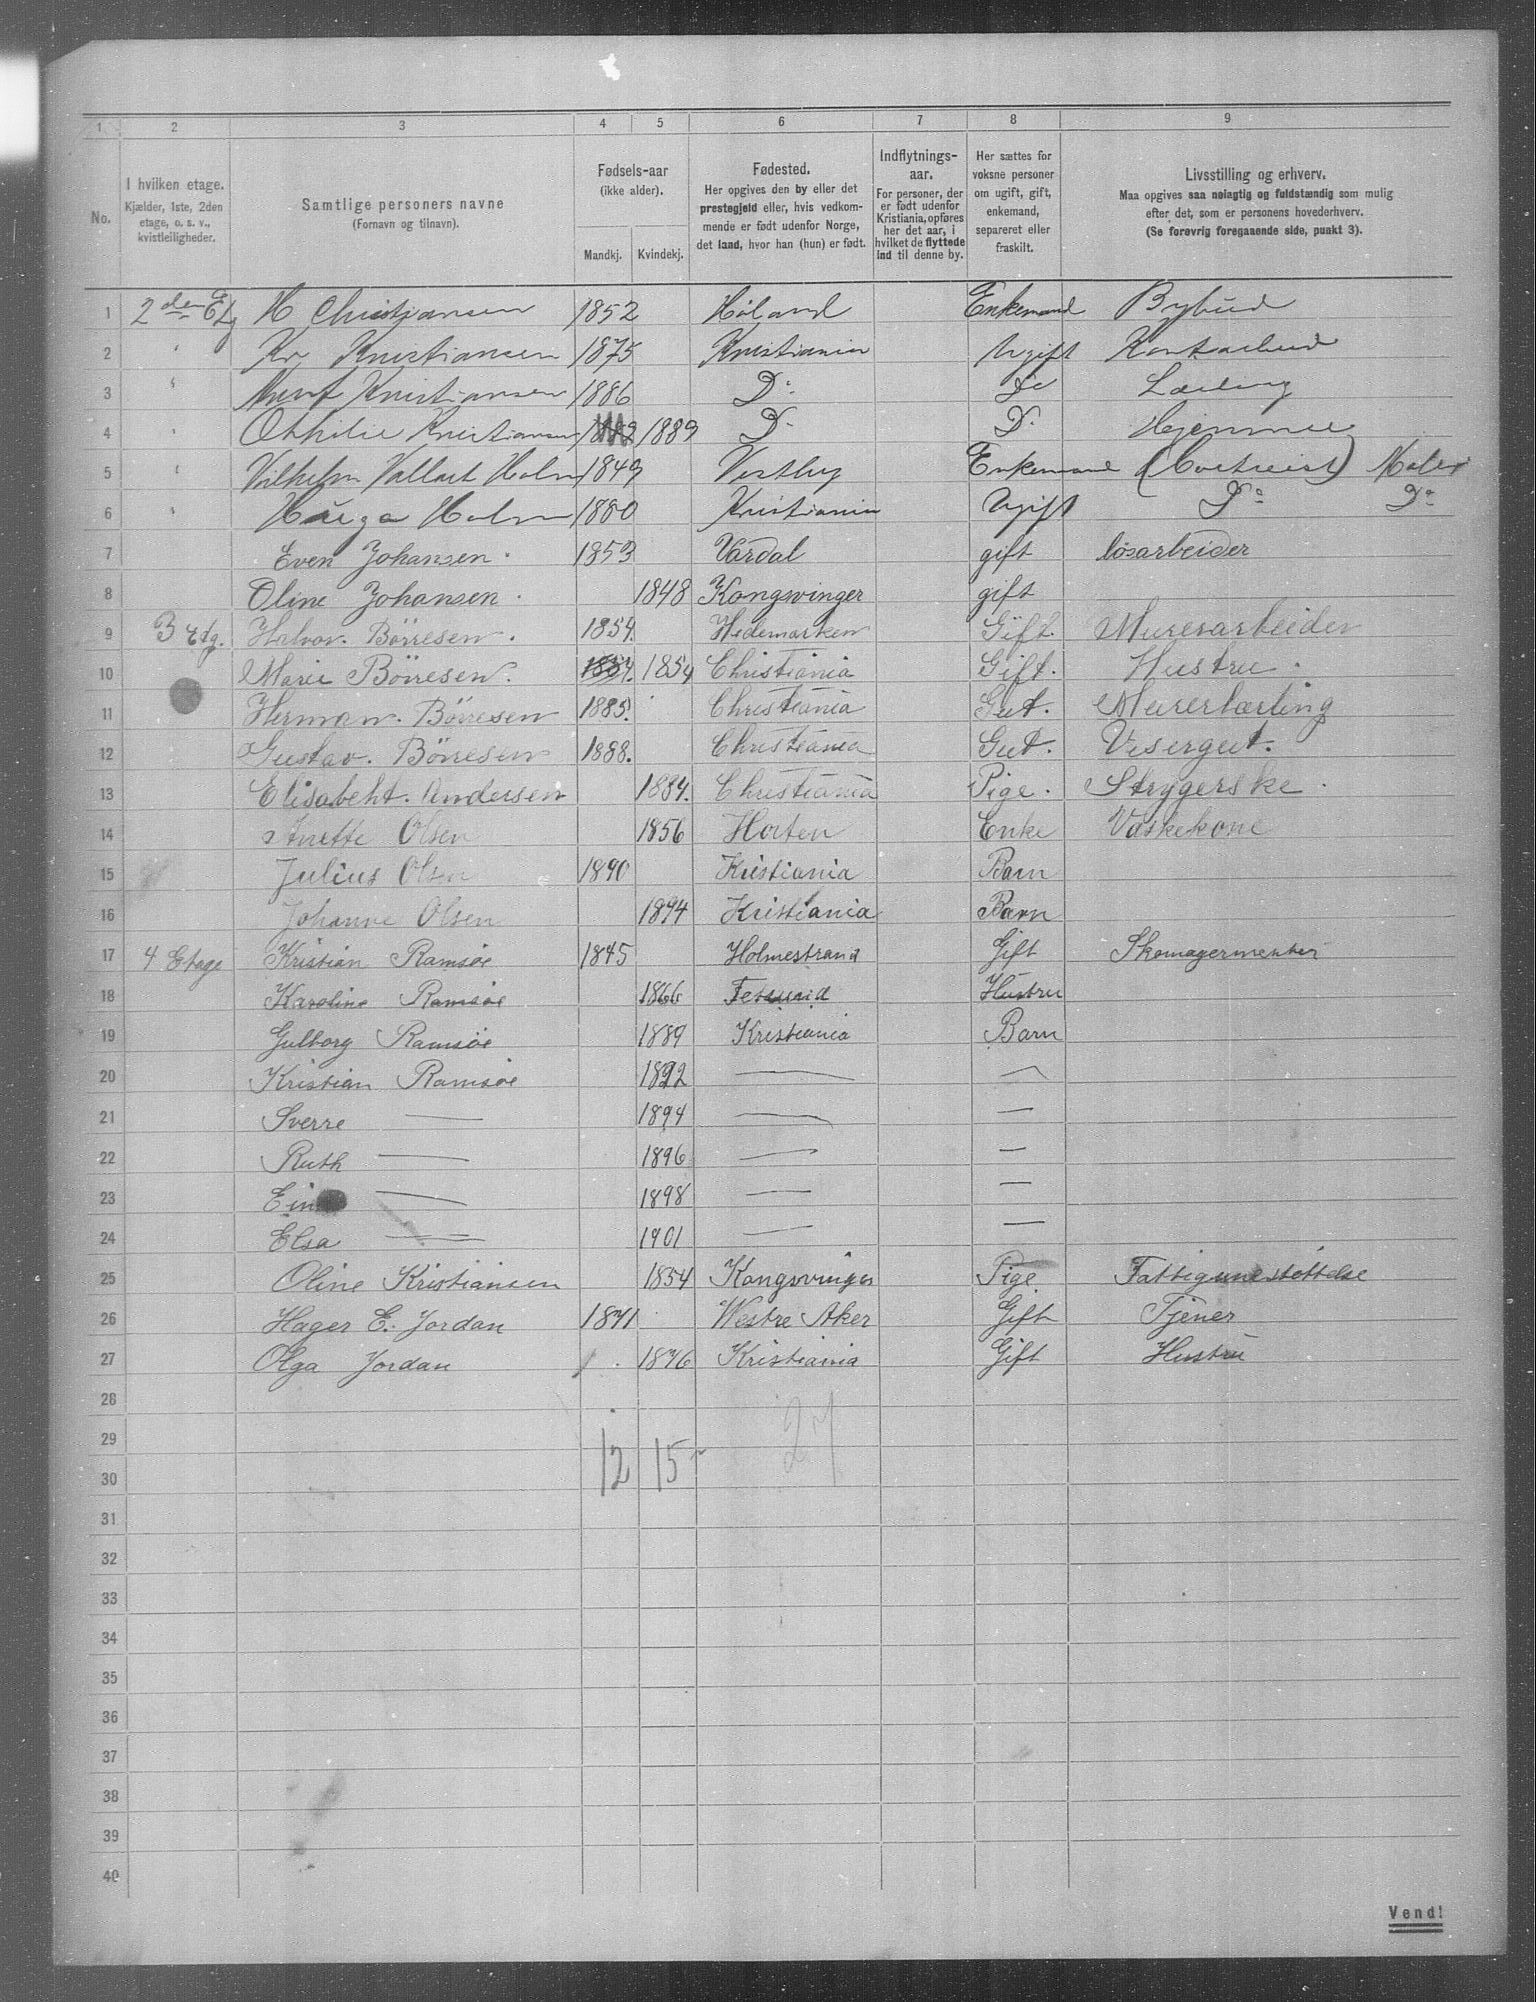 1 2 3 4 5 6 7 8 9
No.
I hvilken etage.
Kjælder, 1ste, 2den
etage, o. s. v.,
kvistleiligheder.
Samtlige personers navne
(Fornavn og tilnavn).
Fødsels-aar
(ikke alder).
Mandkj. Kvindekj.
Fødested.
Her opgives den by eller det
prestegjeld eller, hvis vedkom-
mende er født udenfor Norge,
det land, hvor han (hun) er født.
Indflytnings-
aar.
For personer, der
er født udenfor
Kristiania, opføres
her det aar, i
hvilket de flyttede
ind til denne by.
Her sættes for
voksne personer
om ugift, gift,
enkemand,
separeret eller
fraskilt.
Livsstilling og erhverv.
Maa opgives saa nøiagtig og fuldstændig som mulig
efter det, som er personens hovederhverv.
(Se forøvrig foregaaende side, punkt 3).
1 2den Etg H Christiansen 1852 Høland Enkemand Bybud
2 " Kr Kristiansen 1875 Kristiania Ugift Kontorbud
3 " Kristiansen 1886 Do Do Lærling
4 " Othilie Kristiansen 1889 Do Do Hjemme
5 " Vilhelm Holm 1849 Vestby Enkemand Maler
6 " Holm 1880 Kristiania Ugift Do Do
7 Even Johansen. 1853 Vardal gift løsarbeider
8 Oline Johansen. 1848 Kongsvinger gift
9 3 etg. Halvor. Börresen. 1854. Hedemarken Gift. Murerarbeider
10 Marie Börresen. 1854. 1854 Christiania Gift. Hustru.
11 Herman. Börresen 1885. Christiania Gut. Murerlærling
12 Gustav. Börresen 1888. Christiania Gut. Visergut.
13 Elisabeht. Andersen 1884. Christiania Pige. Strygerske.
14 Anette Olsen 1856 Horten Enke Vaskekone
15 Julius Olsen 1890 Kristiania Barn
16 Johanne Olsen 1894 Kristiania Barn
17 4 Etage Kristian Ramsöe 1845 Holmestrand Gift Skomagermester
18 Karoline Ramsöe 1866 Fetsund Hustru
19 Gulborg Ramsöe 1889 Kristiania Barn
20 Kristian Ramsöe 1892 — —
21 Sverre — 1894 — —
22 Ruth — 1896 — —
23 — 1898 — —
24 Elsa — 1901 — —
25 Oline Kristiansen 1854 Kongsvinger Pige Fattigunestöttelse
26 Hager E. Jordan 1871 Westre Aker Gift Tjener
27 Olga Jordan 1876 Kristiania Gift Hustru
28
29
30 12 15 27
31
32
33
34
35
36
37
38
39
40
Vend!